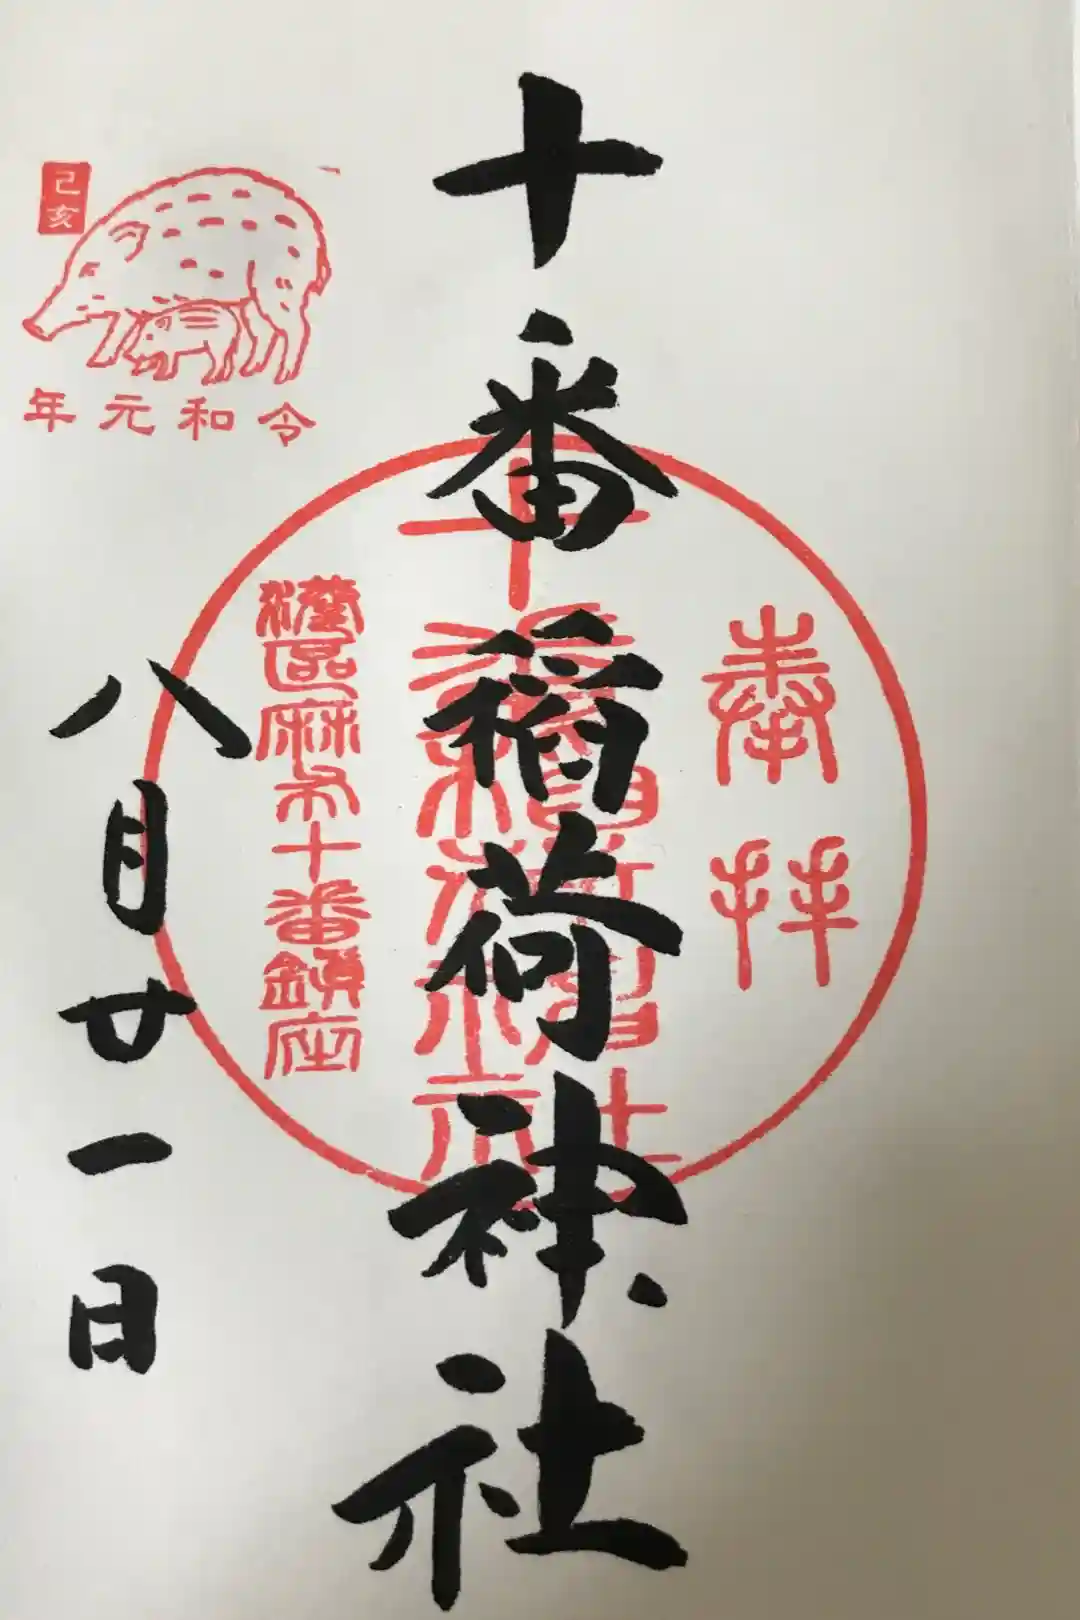 奉拝
十番稲荷神社
十番稲荷神社
港區麻布十番鎮座
己亥
令和元年
八月廿一日